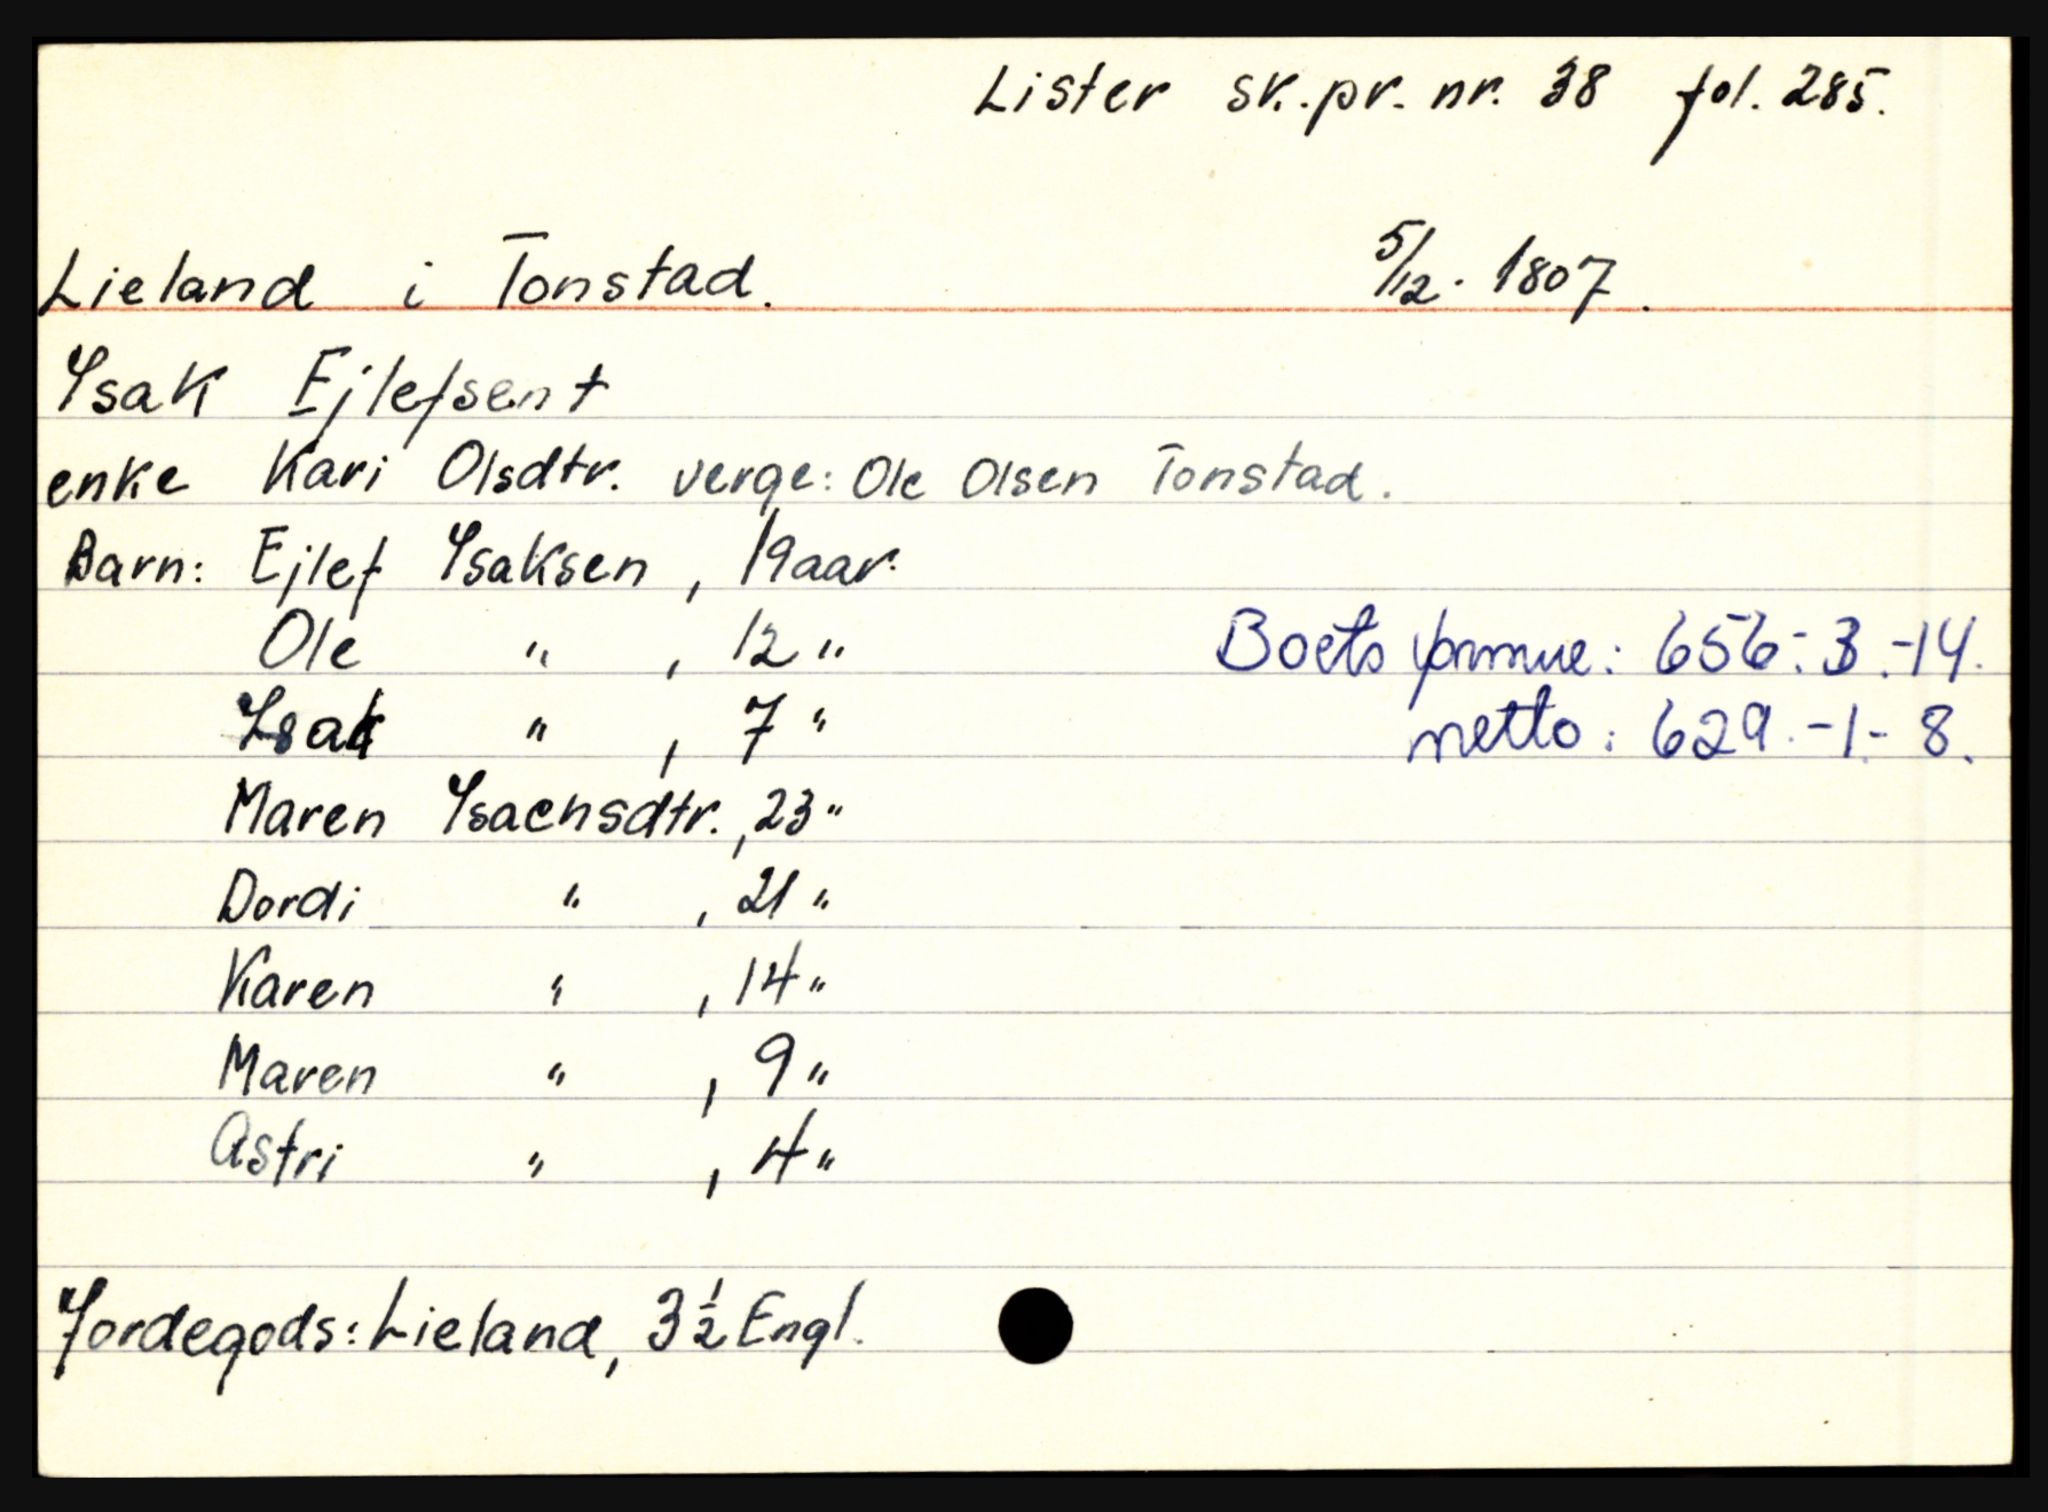 Lister sk.pr. nr. 38 fol. 285.
Lieland i Tonstad. 5/12. 1807.
Ysak Ejlefsen †
enke Kari Olsdtr. verge: Ole Olsen Tonstad.
Barn: Ejlef Ysaksen, 19 aar.
Ole " , 12 " Boets formue: 656.-3.-14.
Isak " , 7 " netto: 629.-1.-8.
Maren Ysacnsdtr., 23 "
Dordi " , 21 "
Karen " , 14 "
Maren " , 9 "
Astri " , 4 "
Jordegods: Lieland, 3 1/2 Engl.